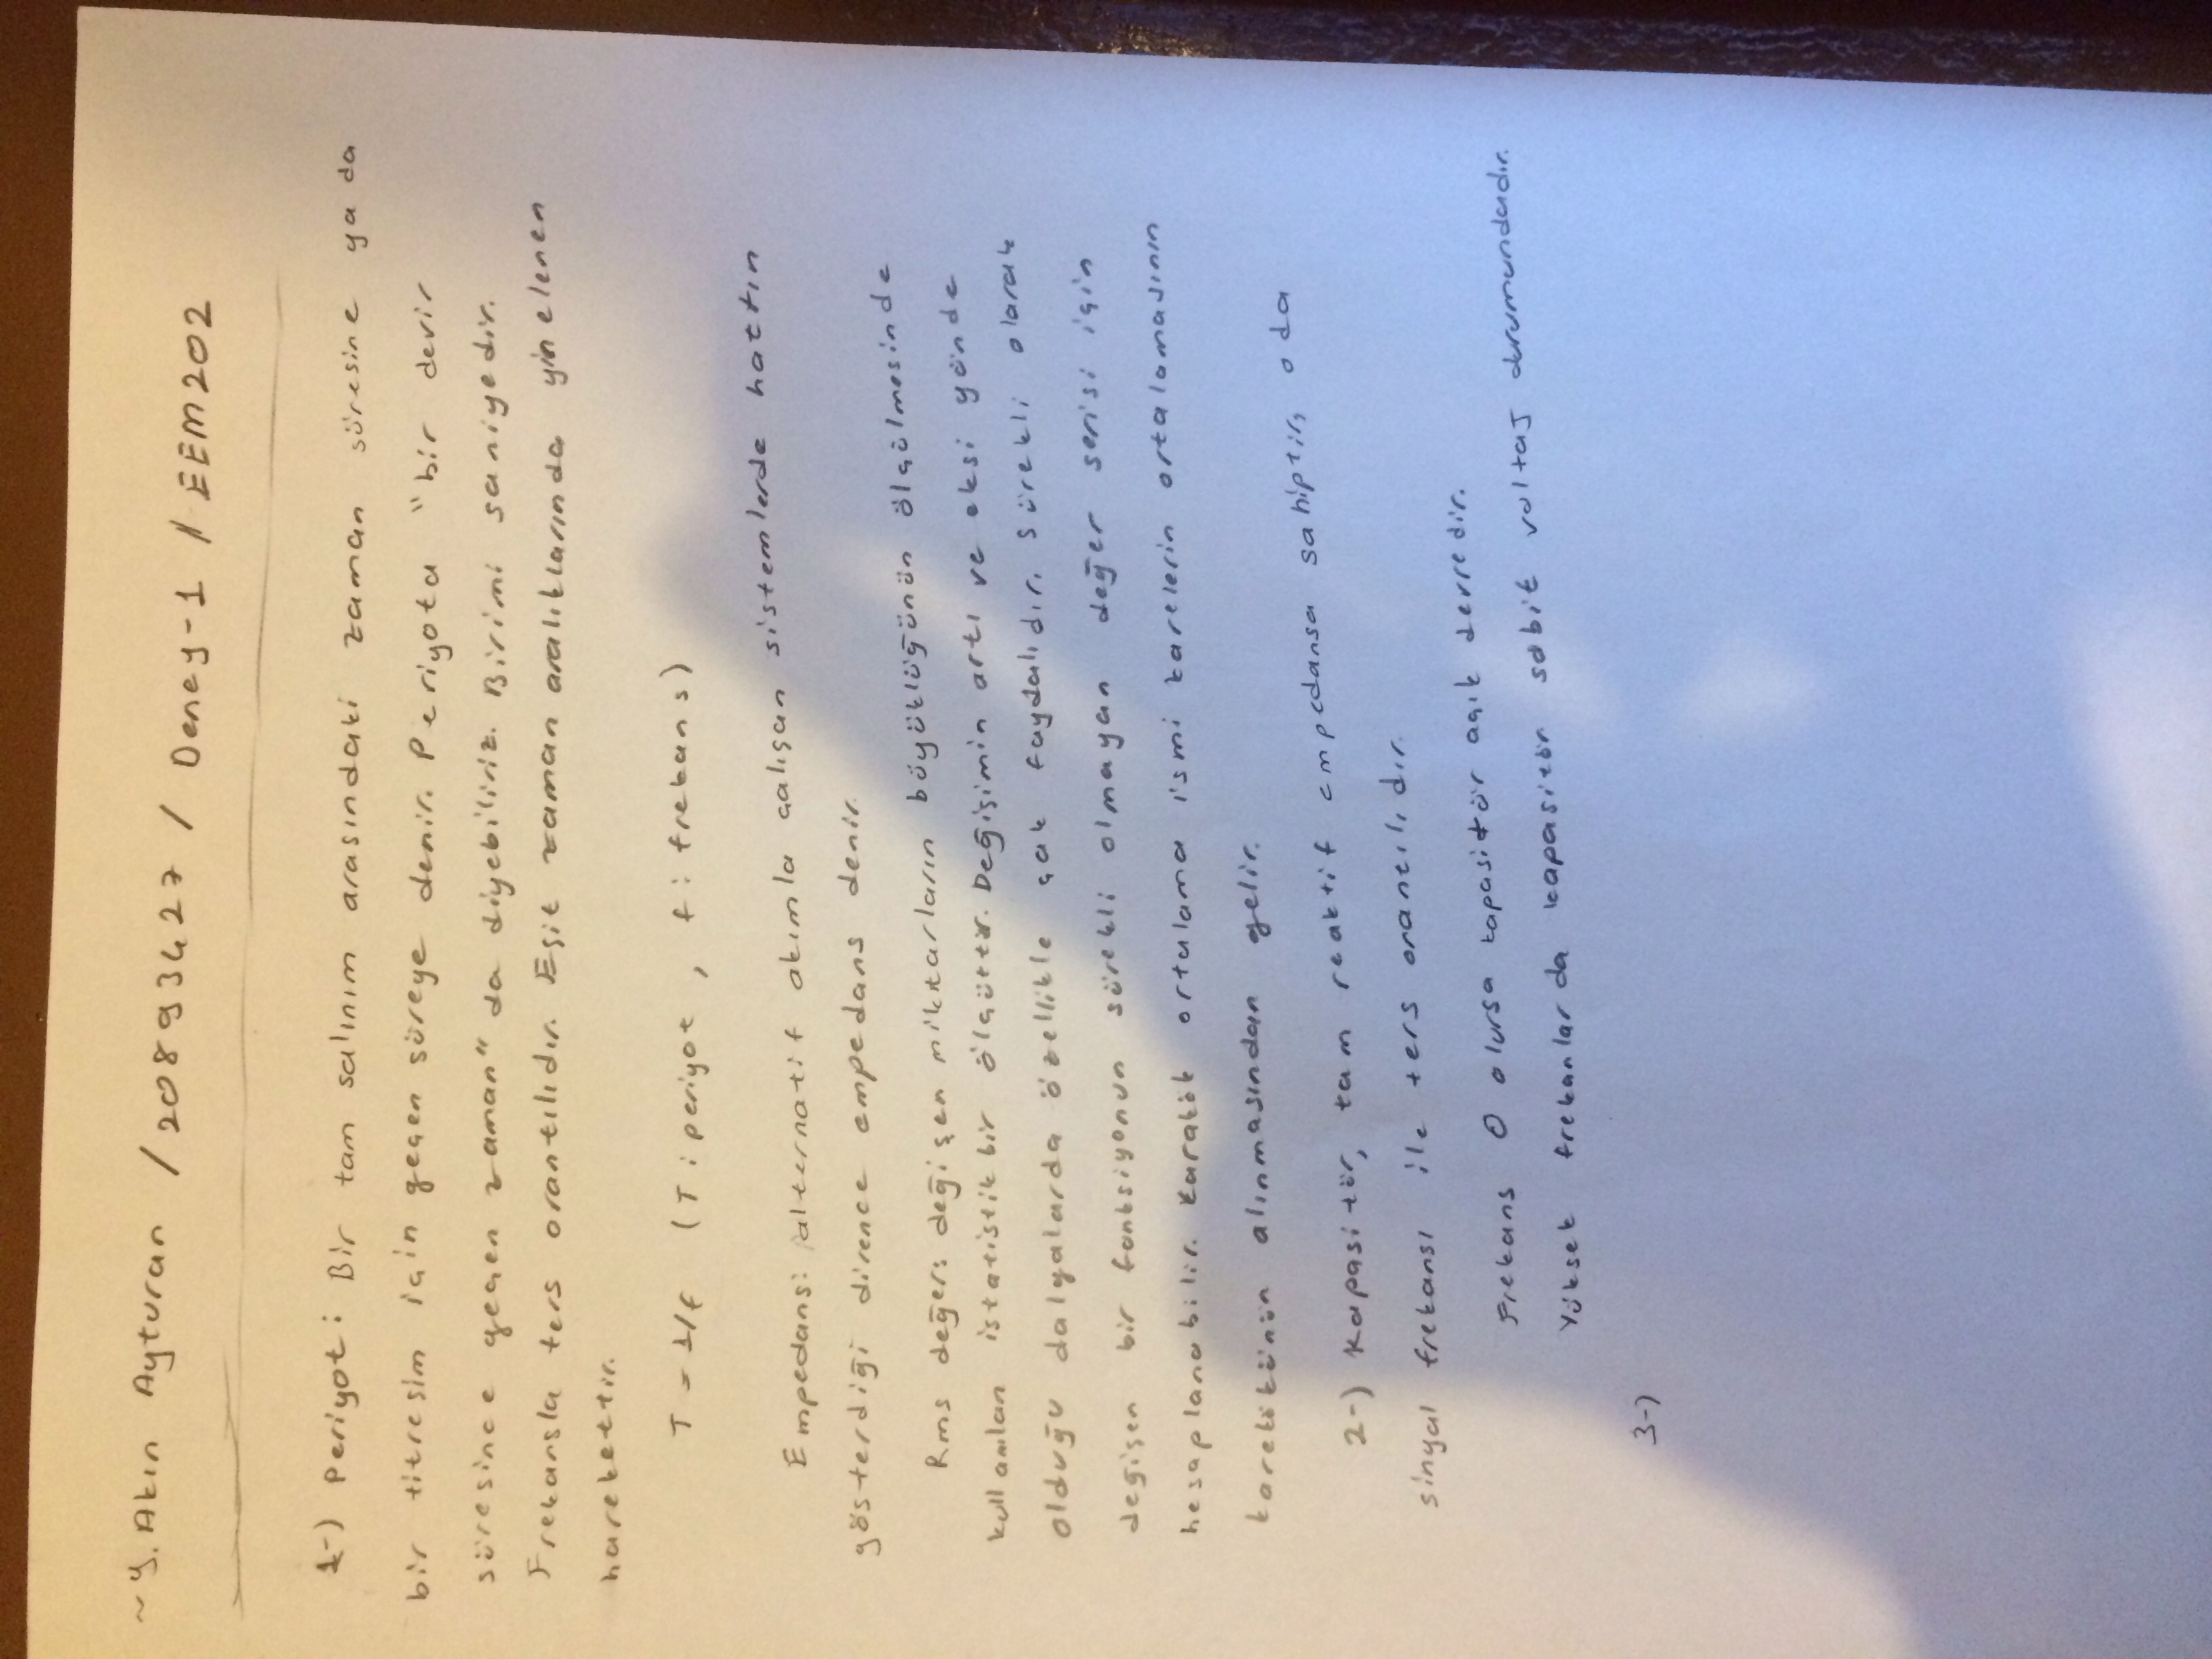 ~ Y. Akın Ayturan / 20893427 / Deney-1 // EEM202
1-) Periyot: Bir tam salınım arasındaki zaman süresine ya da
bir titresim için geçen süreye denir. Periyota "bir devir
süresince geçen zaman" da diyebiliriz. Birimi saniyedir.
Frekansla ters orantılıdır. Eşit zaman aralıklarında yinelenen
harekettir.
T = 1/f (T : periyot , f : frekans)
Empedans: alternatif akımla çalışan sistemlerde hattın
gösterdiği dirence empedans denir.
Rms değer: değişen miktarların büyüklüğünün ölçülmesinde
kullanılan istatistik bir ölçüttür. Değişimin artı ve eksi yönde
olduğu dalgalarda özellikle çok faydalıdır. Sürekli olarak
değişen bir fonksiyonun sürekli olmayan değer serisi için
hesaplanabilir. Karakök ortalama ismi karelerin ortalamasının
karekökünün alınmasından gelir.
2-) Kapasitör, tam reaktif empedansa sahiptir, o da
sinyal frekansı ile ters orantılıdır.
Frekans 0 olursa kapasitör açık devredir.
Yüksek frekanlarda kapasitör sabit voltaj durumundadır.
3-)